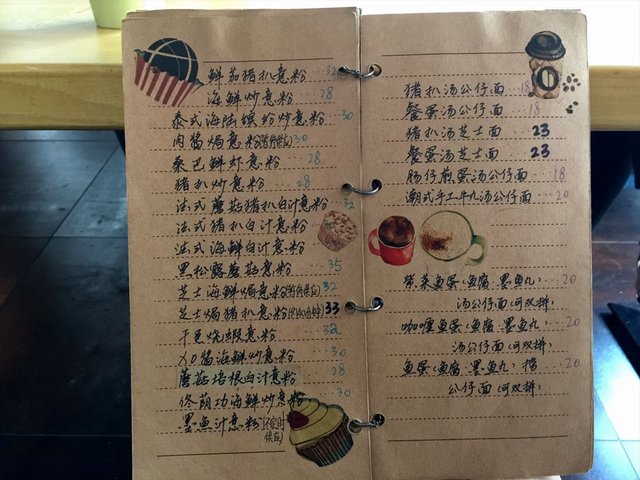 鲜茄猪扒意粉 32
海鲜炒意粉 28
泰式海陆缤纷炒意粉 30
肉酱焗意粉 30
柴巴鲜虾意粉 28
猪扒炒意粉 28
法式蘑菇猪扒白汁意粉 32
法式猪扒白汁意粉
法式海鲜白汁意粉
黑松露蘑菇意粉 35
芝士海鲜焗意粉 32
芝士焗猪扒意粉 33
干色烧蝦意粉 32
XO酱海鲜炒意粉 30
蘑菇培根白汁意粉 28
佟荫功海鲜炒意粉 30
墨魚汁意粉(不定时供应)
猪扒汤公仔面 18
餐蛋汤公仔面 18
猪扒汤芝士面 23
餐蛋汤芝士面 23
肠仔煎蛋汤公仔面 18
潮式手工牛丸汤公仔面 20
紫菜鱼蛋(鱼腐、墨鱼丸) 20
汤公仔面(可双拼)
咖喱鱼蛋(鱼腐、墨鱼丸) 20
汤公仔面(可双拼)
鱼蛋(鱼腐、墨鱼丸)捞 20
公仔面(可双拼)